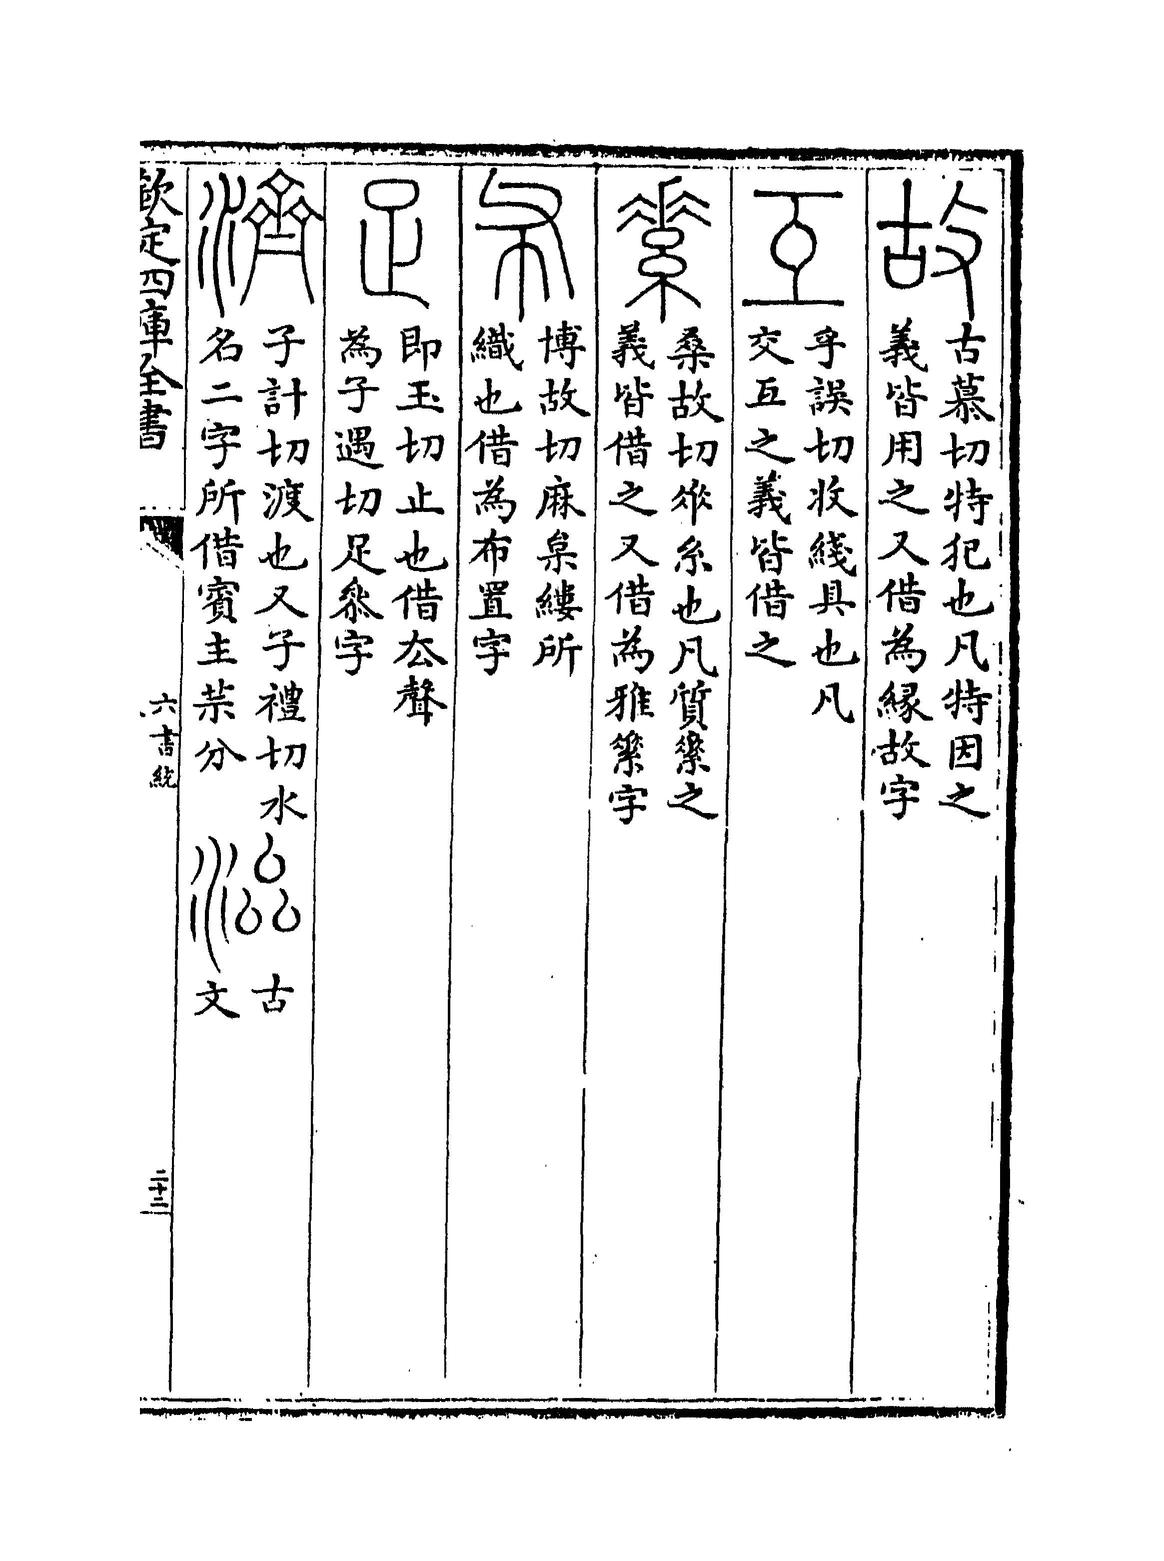 故
古慕切特犯也凡特因之
義皆用之又借為縁故字
互
乎誤切收綫具也凡
交互之義皆借之
素
桑故切糸也凡質之
義皆借之又借為雅字
布
博故切麻枲縷所
織也借為布置字
足
即玉切止也借厺聲
為子遇切足字
濟
子計切渡也又子禮切水
名二字所借賓主分
古
文
欽定四庫全書
六書統
二十二